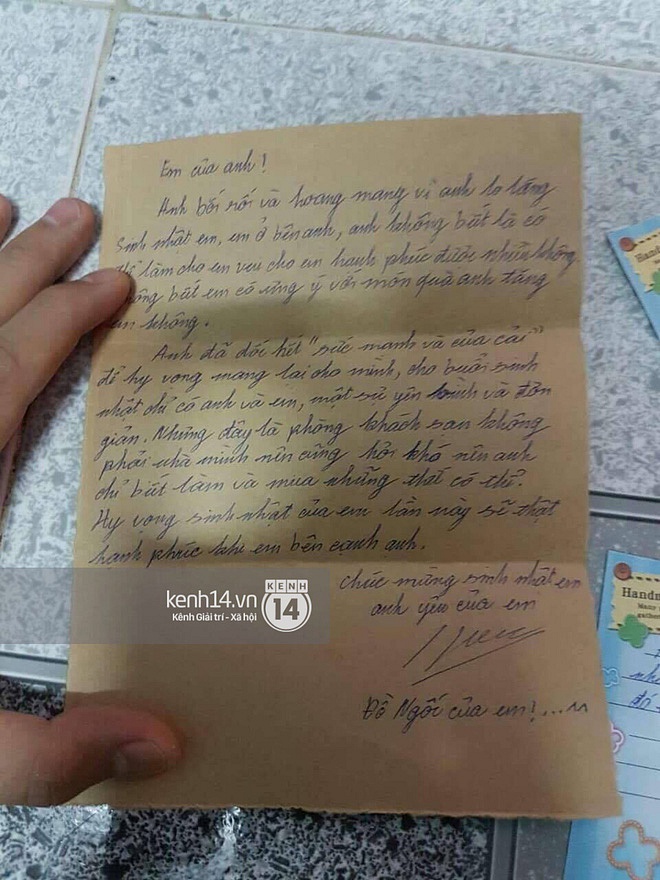 Em của anh!
Anh bối rối và hoang mang vì anh lo lắng
sinh nhật em, em ở bên anh, anh không biết là có
thể làm cho em vui cho em hạnh phúc được nhiều không
không biết em có ưng ý với món quà anh tặng
em không.
Anh đã dốc hết "sức mạnh và của cải"
để hy vọng mang lại cho mình, cho buổi sinh
nhật chỉ có anh và em, một sự yên bình và đơn
giản. Nhưng đây là phòng khách sạn không
phải nhà mình nên cũng hơi khó nên anh
chỉ biết làm và mua những thứ có thể.
Hy vọng sinh nhật của em lần này sẽ thật
hạnh phúc khi em bên cạnh anh.
Chúc mừng sinh nhật em
anh yêu của em
Đồ Ngốc của em!...
kenh14.vn
Kênh Giải trí - Xã hội
KENH
14
Handm
Many
gathe
Hand